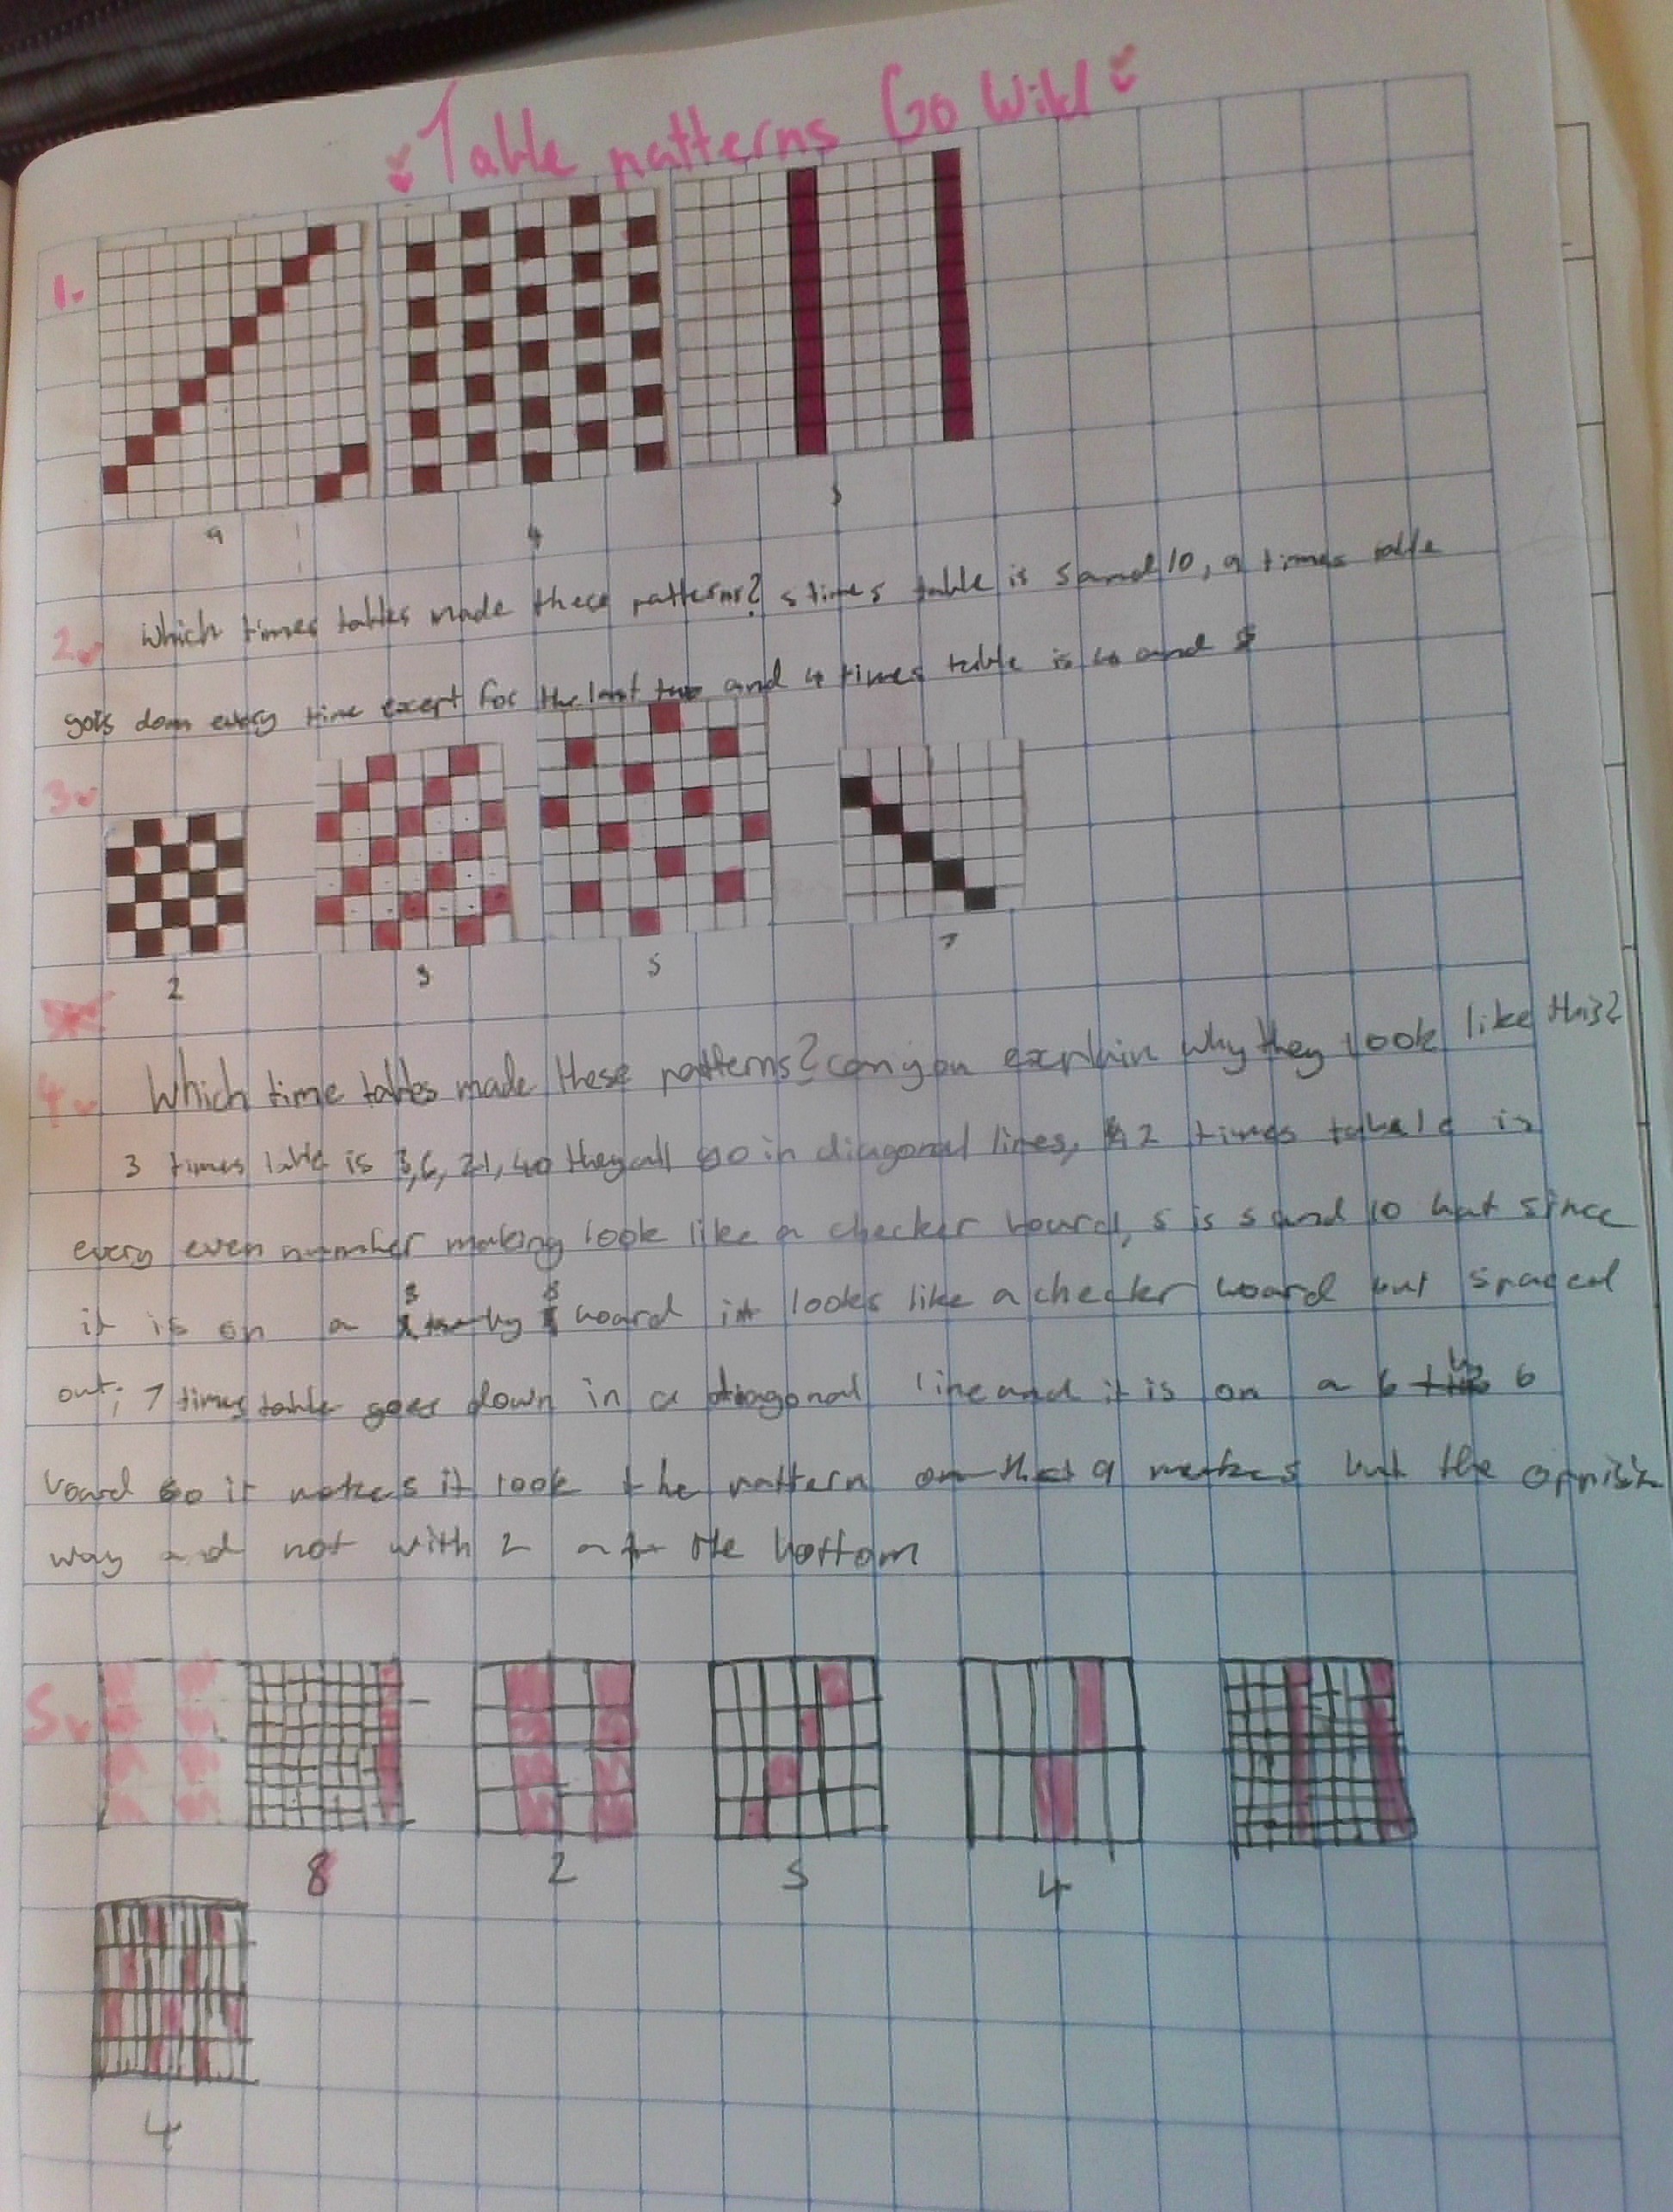 Table patterns Go Wild
1.
9 4 5
2. Which times tables made these patterns? 5 times table is 5 and 10, 9 times table
goes down every time except for the last two and 4 times table is 4 and 8
3.
2 3 5 7
4. Which time tables made these patterns? can you explain why they look like this?
3 times table is 3, 6, 21, 40 they all go in diagonal lines, 2 times table is
every even number making look like a checker board, 5 is 5 and 10 but since
it is on a 8 by 8 board it looks like a checker board but spaced
out; 7 times table goes down in a diagonal line and it is on a 6 by 6
board so it makes it look the pattern 9 makes but the
way and not with 2 at the bottom
5.
8 2 5 4
4